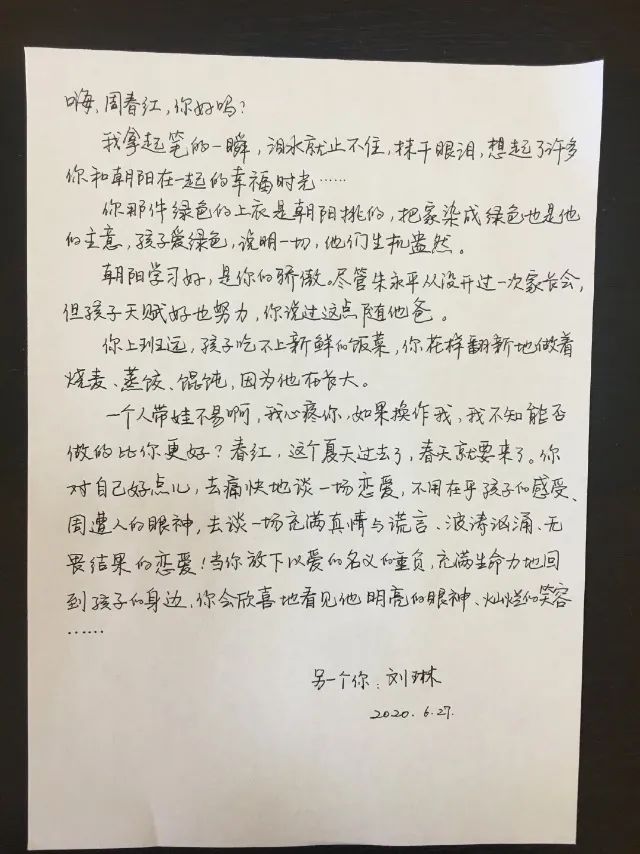 嗨、周春红，你好吗？
我拿起笔的一瞬，泪水就止不住，抹干眼泪，想起了许多
你和朝阳在一起的幸福时光……
你那件绿色的上衣是朝阳挑的，把家染成绿色也是他
的主意，孩子爱绿色，说明一切，他们生机盎然。
朝阳学习好，是你的骄傲。尽管朱永平从没开过一次家长会，
但孩子天赋好也努力，你说过这点随他爸。
你上班远，孩子吃不上新鲜的饭菜，你花样翻新地做着
烧麦、蒸饺、馄饨，因为他在长大。
一个人带娃不易啊，我心疼你，如果换作我，我不知能否
做的比你更好？春红，这个夏天过去了，春天就要来了。你
对自己好点儿，去痛快地谈一场恋爱，不用在乎孩子的感受、
周遭人的眼神，去谈一场充满真情与谎言、波涛汹涌、无
畏结果的恋爱！当你放下以爱的名义的重负，充满生命力地回
到孩子的身边，你会欣喜地看见他明亮的眼神、灿烂的笑容
……
另一个你：刘琳
2020.6.27.